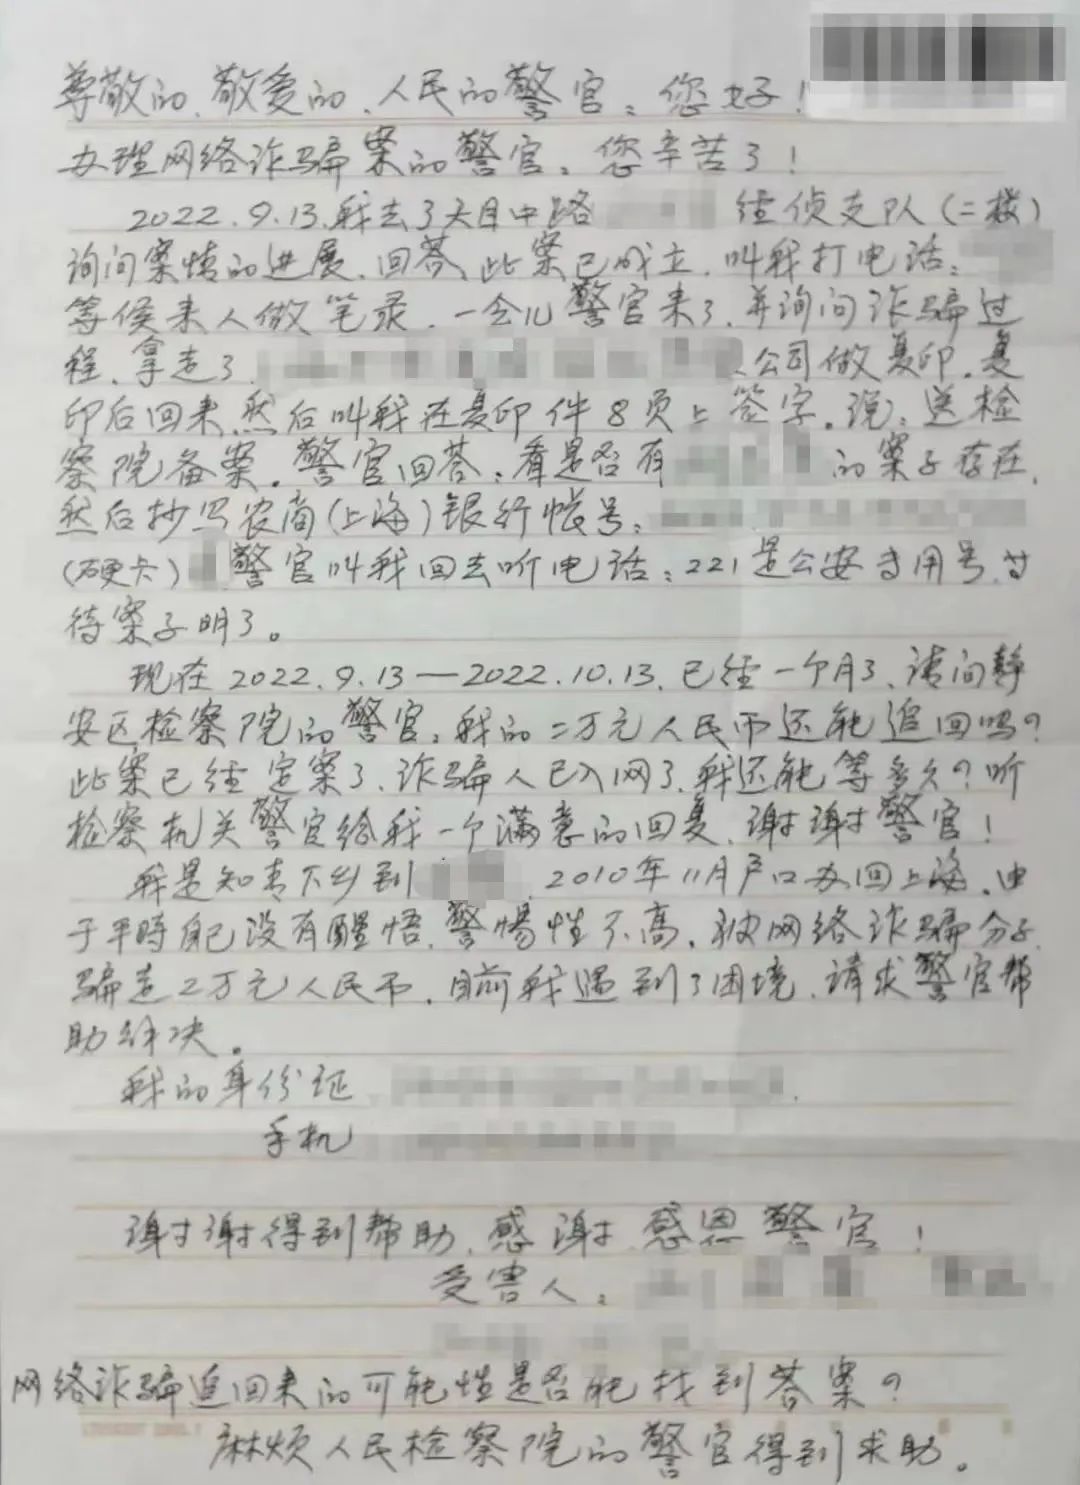 尊敬的、敬爱的、人民的警官：您好！
办理网络诈骗案的警官：您辛苦了！
2022.9.13.我去了天目中路 经侦支队(二楼)
询问案情的进展、回答、此案已成立、叫我打电话：
等候来人做笔录、一会儿警官来了、并询问诈骗过
程、拿走了 公司做复印、复
印后回来、然后叫我在复印件8页上签字。说：送检
察院备案。警官回答：看是否有 的案子存在、
然后抄写农商(上海)银行帐号：
(硬卡) 警官叫我回去听电话：221是公安专用号、等
待案子明了。
现在2022.9.13—2022.10.13.已经一个月了、请问静
安区检察院的警官：我的二万元人民币还能追回吗？
此案已经定案了、诈骗人已入网了、我还能等多久？听
检察机关警官给我一个满意的回复、谢谢警官！
我是知青下乡到 2010年11月户口办回上海、由
于平時自己没有醒悟、警惕性不高、被网络诈骗分子
骗走2万元人民币、目前我遇到了困境、请求警官帮
助解决。
我的身份证
手机
谢谢得到帮助、感谢、感恩警官！
受害人：
网络诈骗追回来的可能性是否能找到答案？
麻烦人民检察院的警官得到求助。